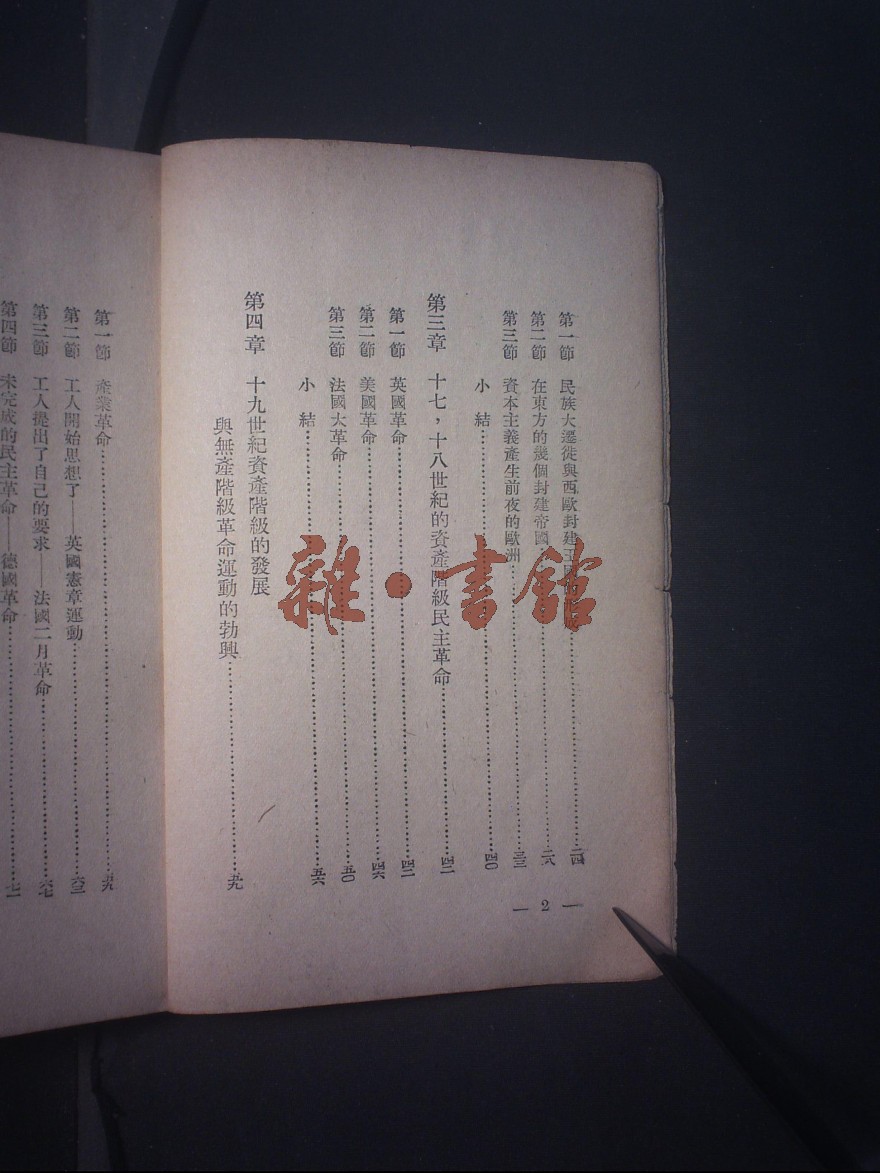 第一節 民族大遷徙與西歐封建王國……二四
第二節 在東方的幾個封建帝國……二八
第三節 資本主義產生前夜的歐洲……三三
小 結……四〇
第三章 十七，十八世紀的資產階級民主革命……四二
第一節 英國革命……四二
第二節 美國革命……四六
第三節 法國大革命……五〇
小 結……五六
第四章 十九世紀資產階級的發展
與無產階級革命運動的勃興……五九
— 2 —
第一節 產業革命……五九
第二節 工人開始思想了——英國憲章運動……六三
第三節 工人提出了自己的要求——法國二月革命……六七
第四節 未完成的民主革命——德國革命……七一
雜·書館